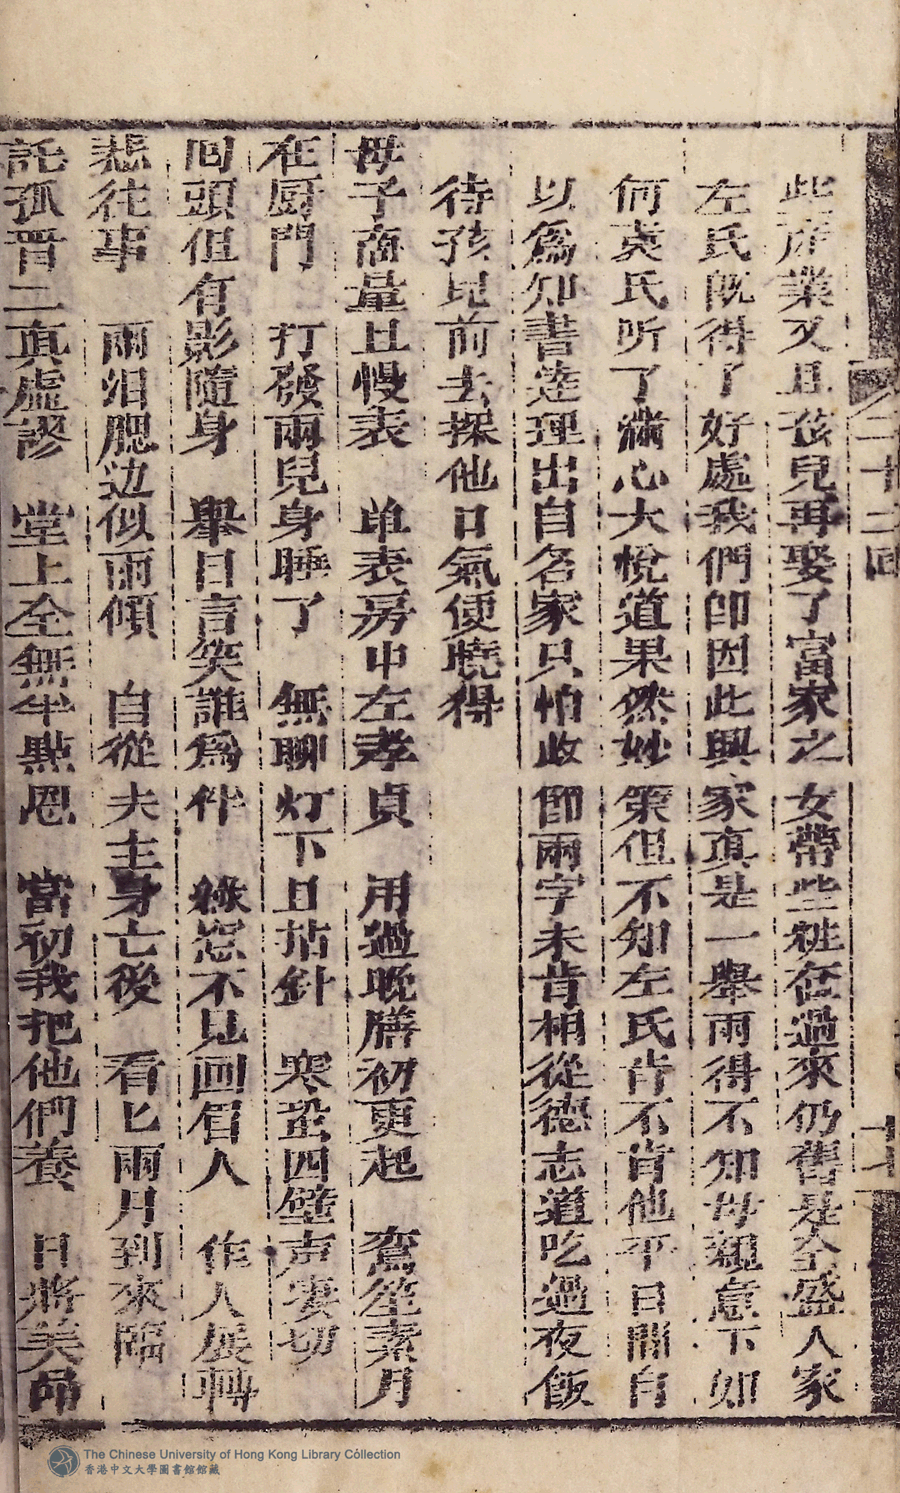 二十二回
此産業又且孩兒再娶了富家之女帶些粧奩過來仍舊是全盛人家
左氏既得了好處我們即因此興家真是一舉兩得不知母親意下如
何莫氏听了滿心大悅道果然妙策但不知左氏肯不肯他平日間自
以爲知書達理出自名家只怕改節兩字未肯相從德志道吃過夜飯
待孩兒前去探他口氣便曉得
母子商量且慢表 单表房中左孝貞 用過晚膳初更起 鴛笙素月
在厨門 打發兩兒身睡了 無聊灯下且拈針 寒蛩四壁声凄切
回頭但有影隨身 舉目言笑誰爲伴 綠窓不見回眉人 作人展轉
悲往事 兩泪腮边似雨傾 自從夫主身亡後 看匕兩月到來臨
託孤晋二真虛謬 堂上全無半點恩 當初我把他們養 日將美
The Chinese University of Hong Kong Library Collection
香港中文大學圖書館館藏